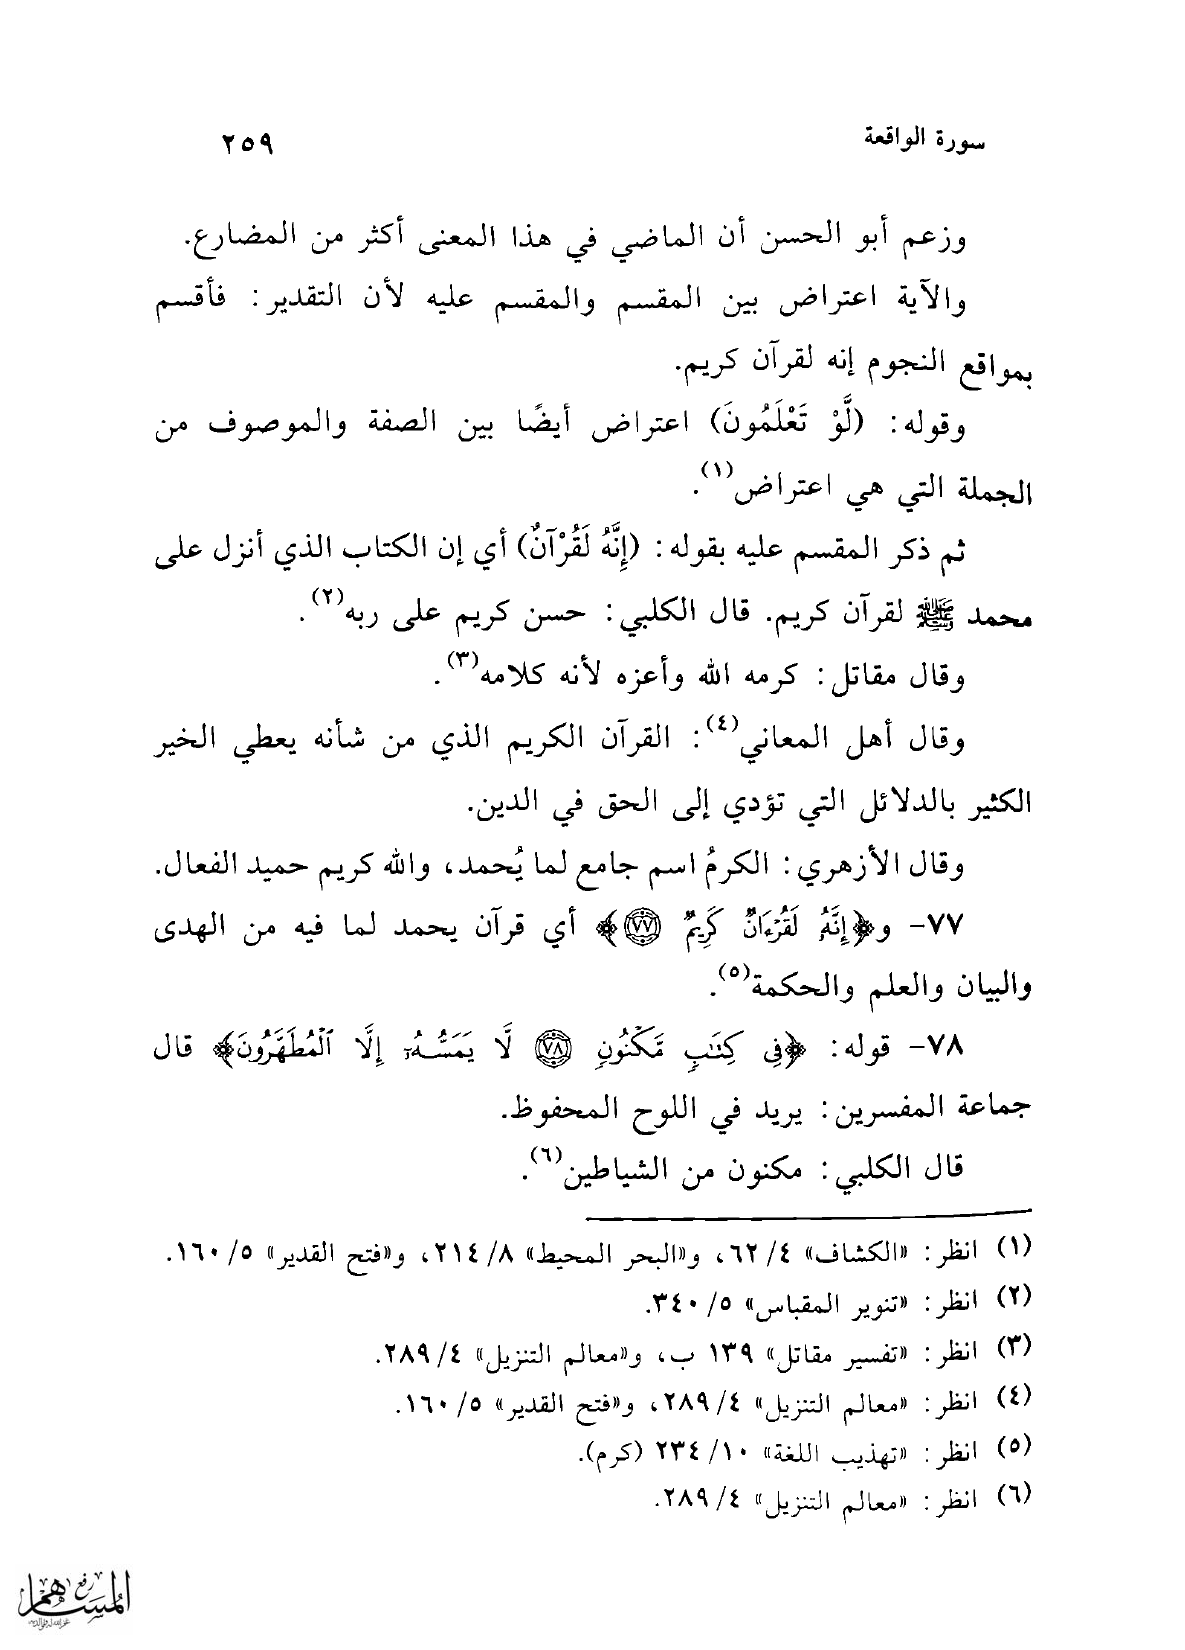 سورة الواقعة ٢٥٩
وزعم أبو الحسن أن الماضي في هذا المعنى أكثر من المضارع.
والآية اعتراض بين المقسم والمقسم عليه لأن التقدير: فأقسم
بمواقع النجوم إنه لقرآن كريم.
وقوله: (لَّوْ تَعْلَمُونَ) اعتراض أيضًا بين الصفة والموصوف من
الجملة التي هي اعتراض(١).
ثم ذكر المقسم عليه بقوله: (إِنَّهُ لَقُرْآنٌ) أي إن الكتاب الذي أنزل على
محمد ﷺ لقرآن كريم. قال الكلبي: حسن كريم على ربه(٢).
وقال مقاتل: كرمه الله وأعزه لأنه كلامه(٣).
وقال أهل المعاني(٤): القرآن الكريم الذي من شأنه يعطي الخير
الكثير بالدلائل التي تؤدي إلى الحق في الدين.
وقال الأزهري: الكرمُ اسم جامع لما يُحمد، والله كريم حميد الفعال.
٧٧- و﴿إِنَّهُۥ لَقُرْءَانٌ كَرِيمٌ ٧٧﴾ أي قرآن يحمد لما فيه من الهدى
والبيان والعلم والحكمة(٥).
٧٨- قوله: ﴿فِى كِتَٰبٍ مَّكْنُونٍ ٧٨ لَّا يَمَسُّهُۥٓ إِلَّا ٱلْمُطَهَّرُونَ﴾ قال
جماعة المفسرين: يريد في اللوح المحفوظ.
قال الكلبي: مكنون من الشياطين(٦).
(١) انظر: «الكشاف» ٤/ ٦٢، و«البحر المحيط» ٨/ ٢١٤، و«فتح القدير» ٥/ ١٦٠.
(٢) انظر: «تنوير المقباس» ٥/ ٣٤٠.
(٣) انظر: «تفسير مقاتل» ١٣٩ ب، و«معالم التنزيل» ٤/ ٢٨٩.
(٤) انظر: «معالم التنزيل» ٤/ ٢٨٩، و«فتح القدير» ٥/ ١٦٠.
(٥) انظر: «تهذيب اللغة» ١٠/ ٢٣٤ (كرم).
(٦) انظر: «معالم التنزيل» ٤/ ٢٨٩.
رفع
المساهم